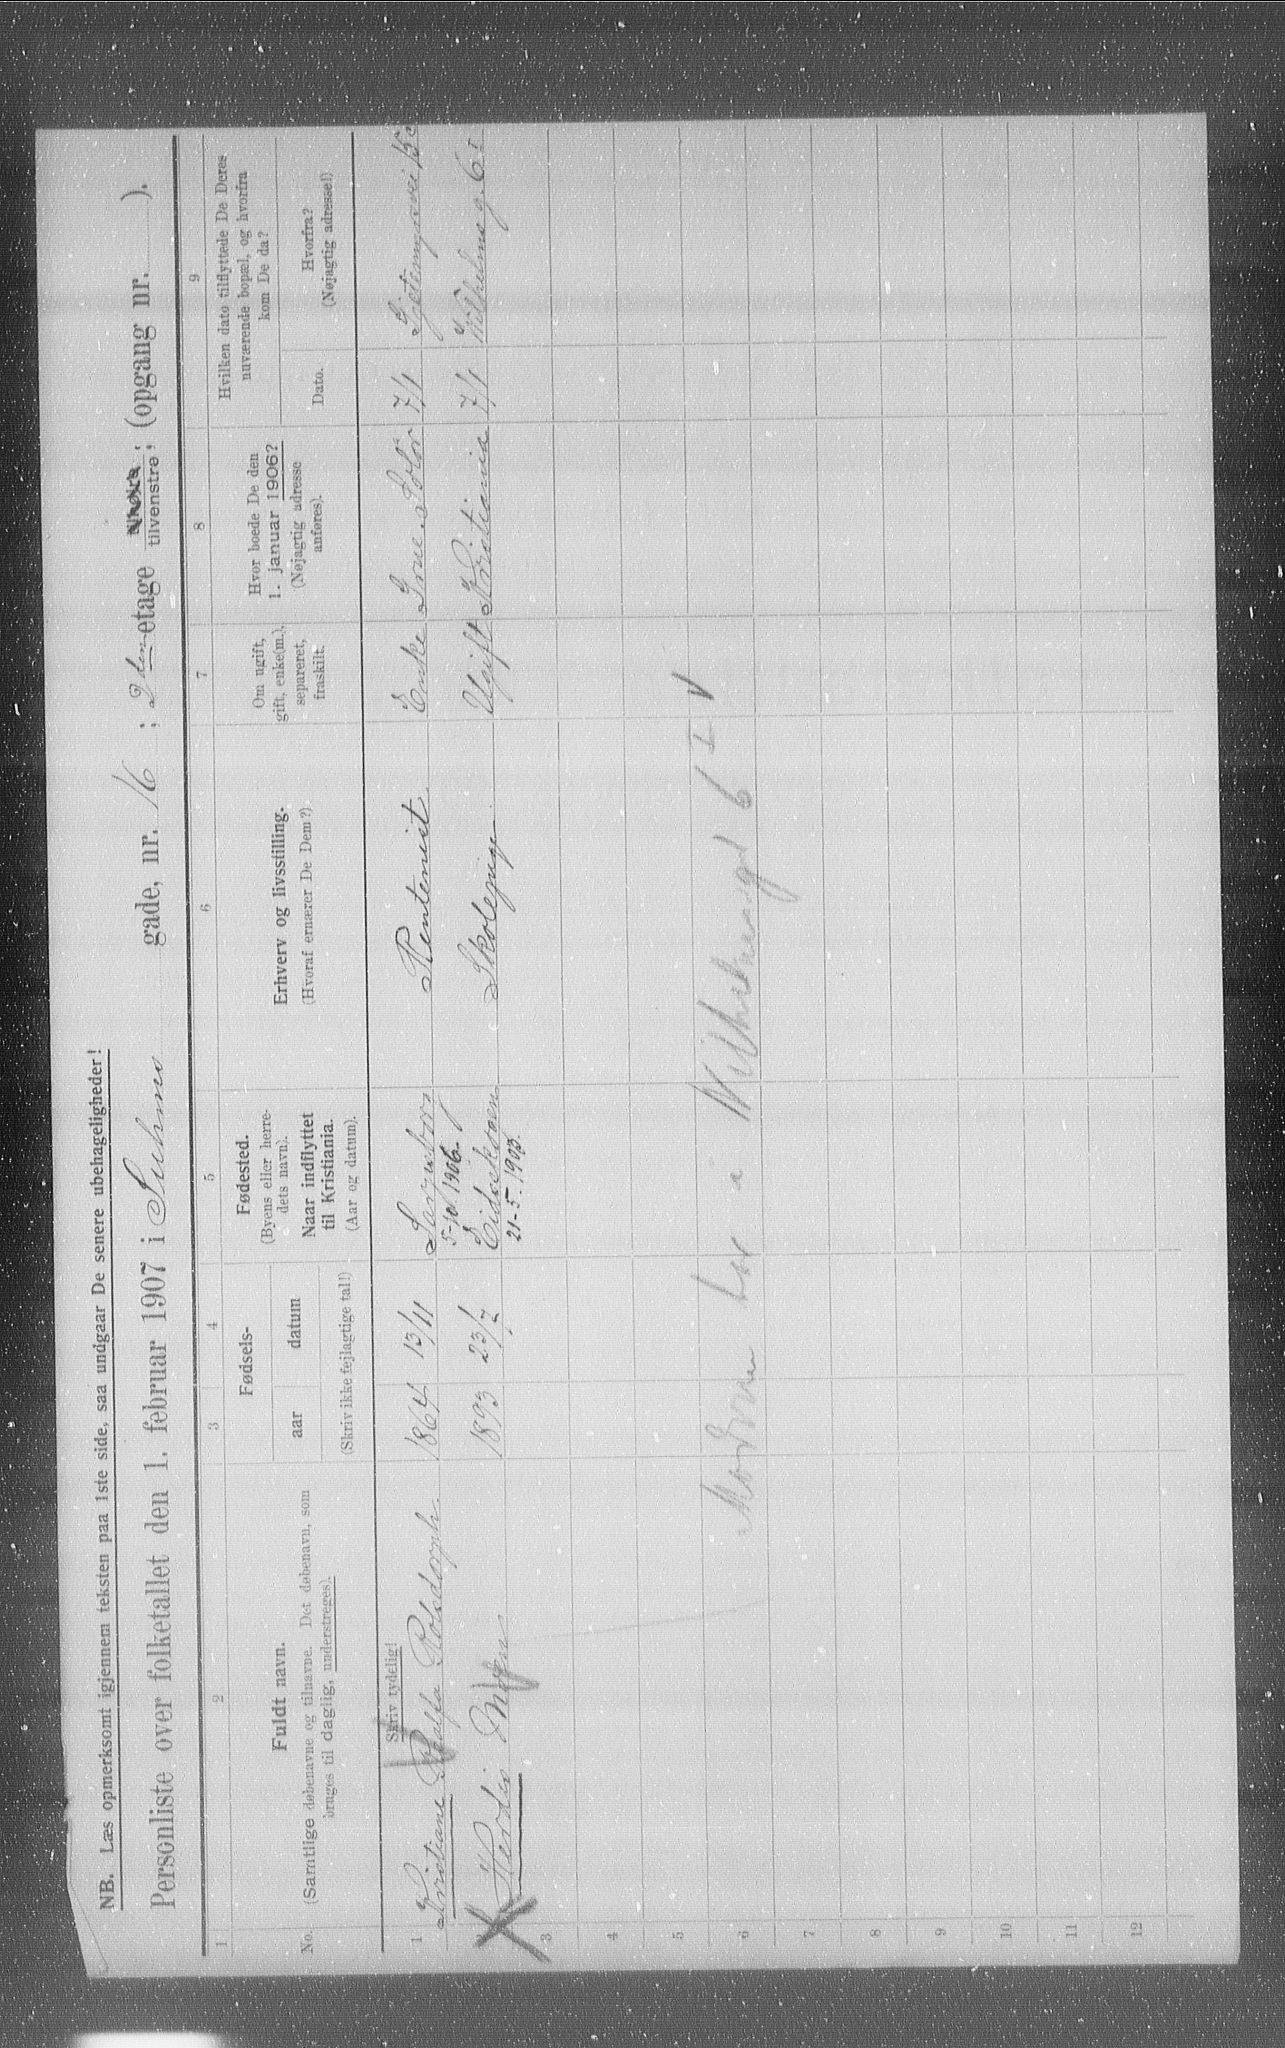 NB. Læs opmerksomt igjennem teksten paa 1ste side, saa undgaar De senere ubehageligheder!
Personliste over folketallet den 1. februar 1907 i Suhms gade, nr. 16 ; 2den etage tilvenstre; (opgang nr. ).
1 2 3 4 5 6 7 8 9
No.
Fuldt navn.
(Samtlige døbenavne og tilnavne. Det døbenavn, som
bruges til daglig, understreges).
Fødsels-
aar
datum
(Skriv ikke fejlagtige tal!)
Fødested.
(Byens eller herre-
dets navn).
Naar indflyttet
til Kristiania.
(Aar og datum).
Erhverv og livsstilling.
(Hvoraf ernærer De Dem?)
Om ugift,
gift, enke(m.),
separeret,
fraskilt.
Hvor boede De den
1. januar 1906?
(Nøjagtig adresse
anføres).
Hvilken dato tilflyttede De Deres
nuværende bopæl, og hvorfra
kom De da?
Dato.
Hvorfra?
(Nøjagtig adresse!)
Skriv tydelig!
1 Kristiane Rolsdorph. 1864 13/11 Sarpsborg Rentenist Enke Grue. Solør 7/1
5-10 1906.
Herdis 1893 23/7 Eidsskogen Skolepige Ugift Kristiania 7/1 Wilhelms g. 6 I
21-5. 1903.
3
4
5
Moderen bor i Wilhelmsgd 6 I V
6
7
8
9
10
11
12